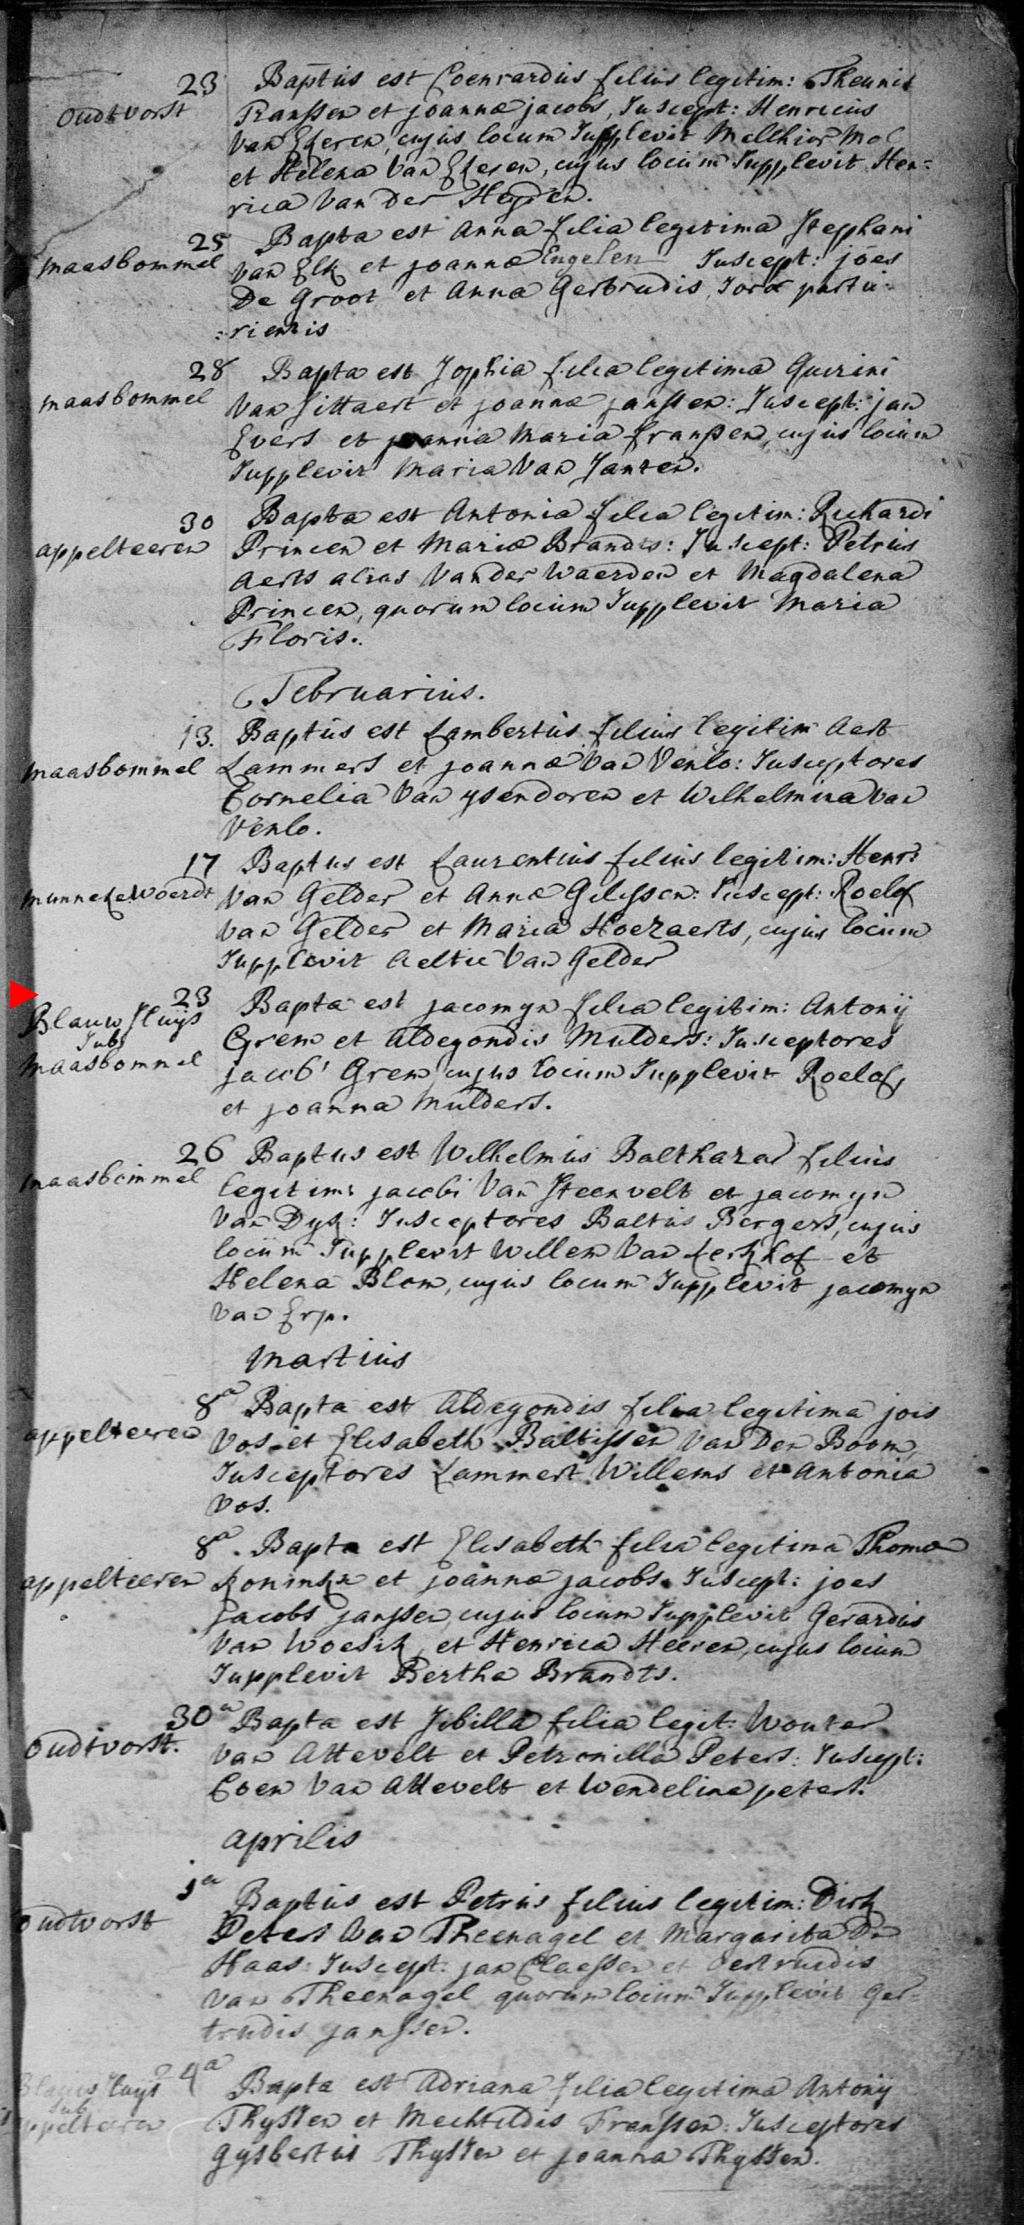 23 Baptus est Coenrardus filius legitim: Theunis
oudtvorst Ranssen et joannæ jacobs, Suscept: Henricus
van Ekeren, cujus locum Supplevit Melchior Mol
et Helena van Ekeren, cujus locum Supplevit Hen=
rica van der Heyden.
25 Bapta est Anna filia legitima Stephani
maasbommel van Elk et joannæ Engelen Suscept: joes
De Groot et Anna Gertrudis Soror partu=
:rientis
28 Bapta est Sophia filia legitima Quirini
maasbommel van Sittaert et joannæ janssen: Suscept: jan
Evers et joanna Maria franssen, cujus locum
Supplevit Maria van Santen.
30 Bapta est Antonia filia legitim: Richardi
appelteeren Princen et Mariæ Brandts: Suscept: Petrus
Aerts alias vander Waerden et Magdalena
Princen, quorum locum Supplevit Maria
Floris.
Februarius.
13. Baptus est Lambertus filius legitim Aert
maasbommel Lammers et joannæ van Venlo: Susceptores
Cornelia van ysendoren et Wilhelmina van
Venlo.
17 Baptus est Laurentius filius legitim: Henri
munnekewoerdt van Gelder et Annæ Gilissen: Suscept: Roelof
van Gelder et Maria Hoezaerts, cujus locum
Supplevit Aeltie van Gelder
23 Bapta est jacomyn filia legitim: Antonij
Blauw Sluijs Grem et Aldegondis Mulders: Susceptores
Sub
maasbommel jacob Grem, cujus locum Supplevit Roelof,
et joanna Mulders.
26 Baptus est Wilhelmus Balthazar filius
maasbommel legitim: jacobi van Steenvelt et jacomyn
van Dyk: Susceptores Baltus Bergers, cujus
locum Supplevit Willem van kerkhof et
Helena Blom, cujus locum Supplevit jacomyn
van Erp.
Martius
8a Bapta est Aldegondis filia legitima jois
appelteeren Vos et Elisabeth Baltissen van Den Boom
Susceptores Lammert Willems et Antonia
Vos.
8a. Bapta est Elisabeth filia legitima Thomæ
appelteeren Koninkx et joannæ jacobs. Suscept: joes
jacobs janssen, cujus locum Supplevit Gerardus
van Woesik, et Henrica Heeren, cujus locum
Supplevit Bertha Brandts.
30a Bapta est Sibilla filia legit: Wouter
oudtvorst. van Attevelt et Petronilla Peters: Suscept:
Coen van Attevelt et Wendelina peters.
Aprilis
1a Baptus est Petrus filius legitim: Dirk
oudtvorst Peters van Theenagel et Margarita De
Haas: Suscept: jan Claessen et Gertrudis
van Theenagel quorum locum Supplevit Ger=
trudis janssen.
4a Bapta est Adriana filia legitima Antonij
Blauw Sluijs
Sub
appelteeren Thyssen et Mechtildis Franssen: Susceptores
Gysbertus Thyssen et joanna Thyssen.